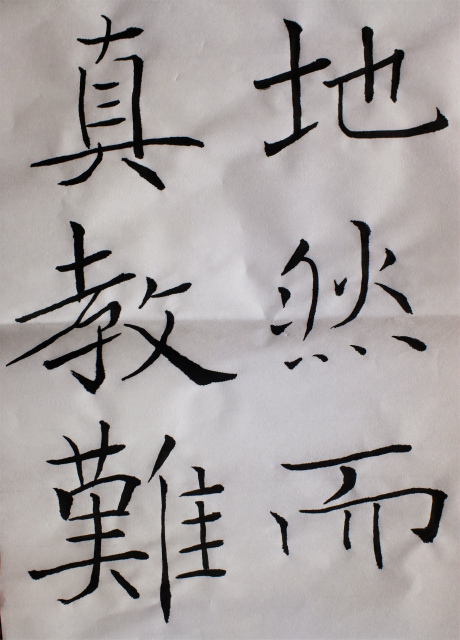 地然而
真教難